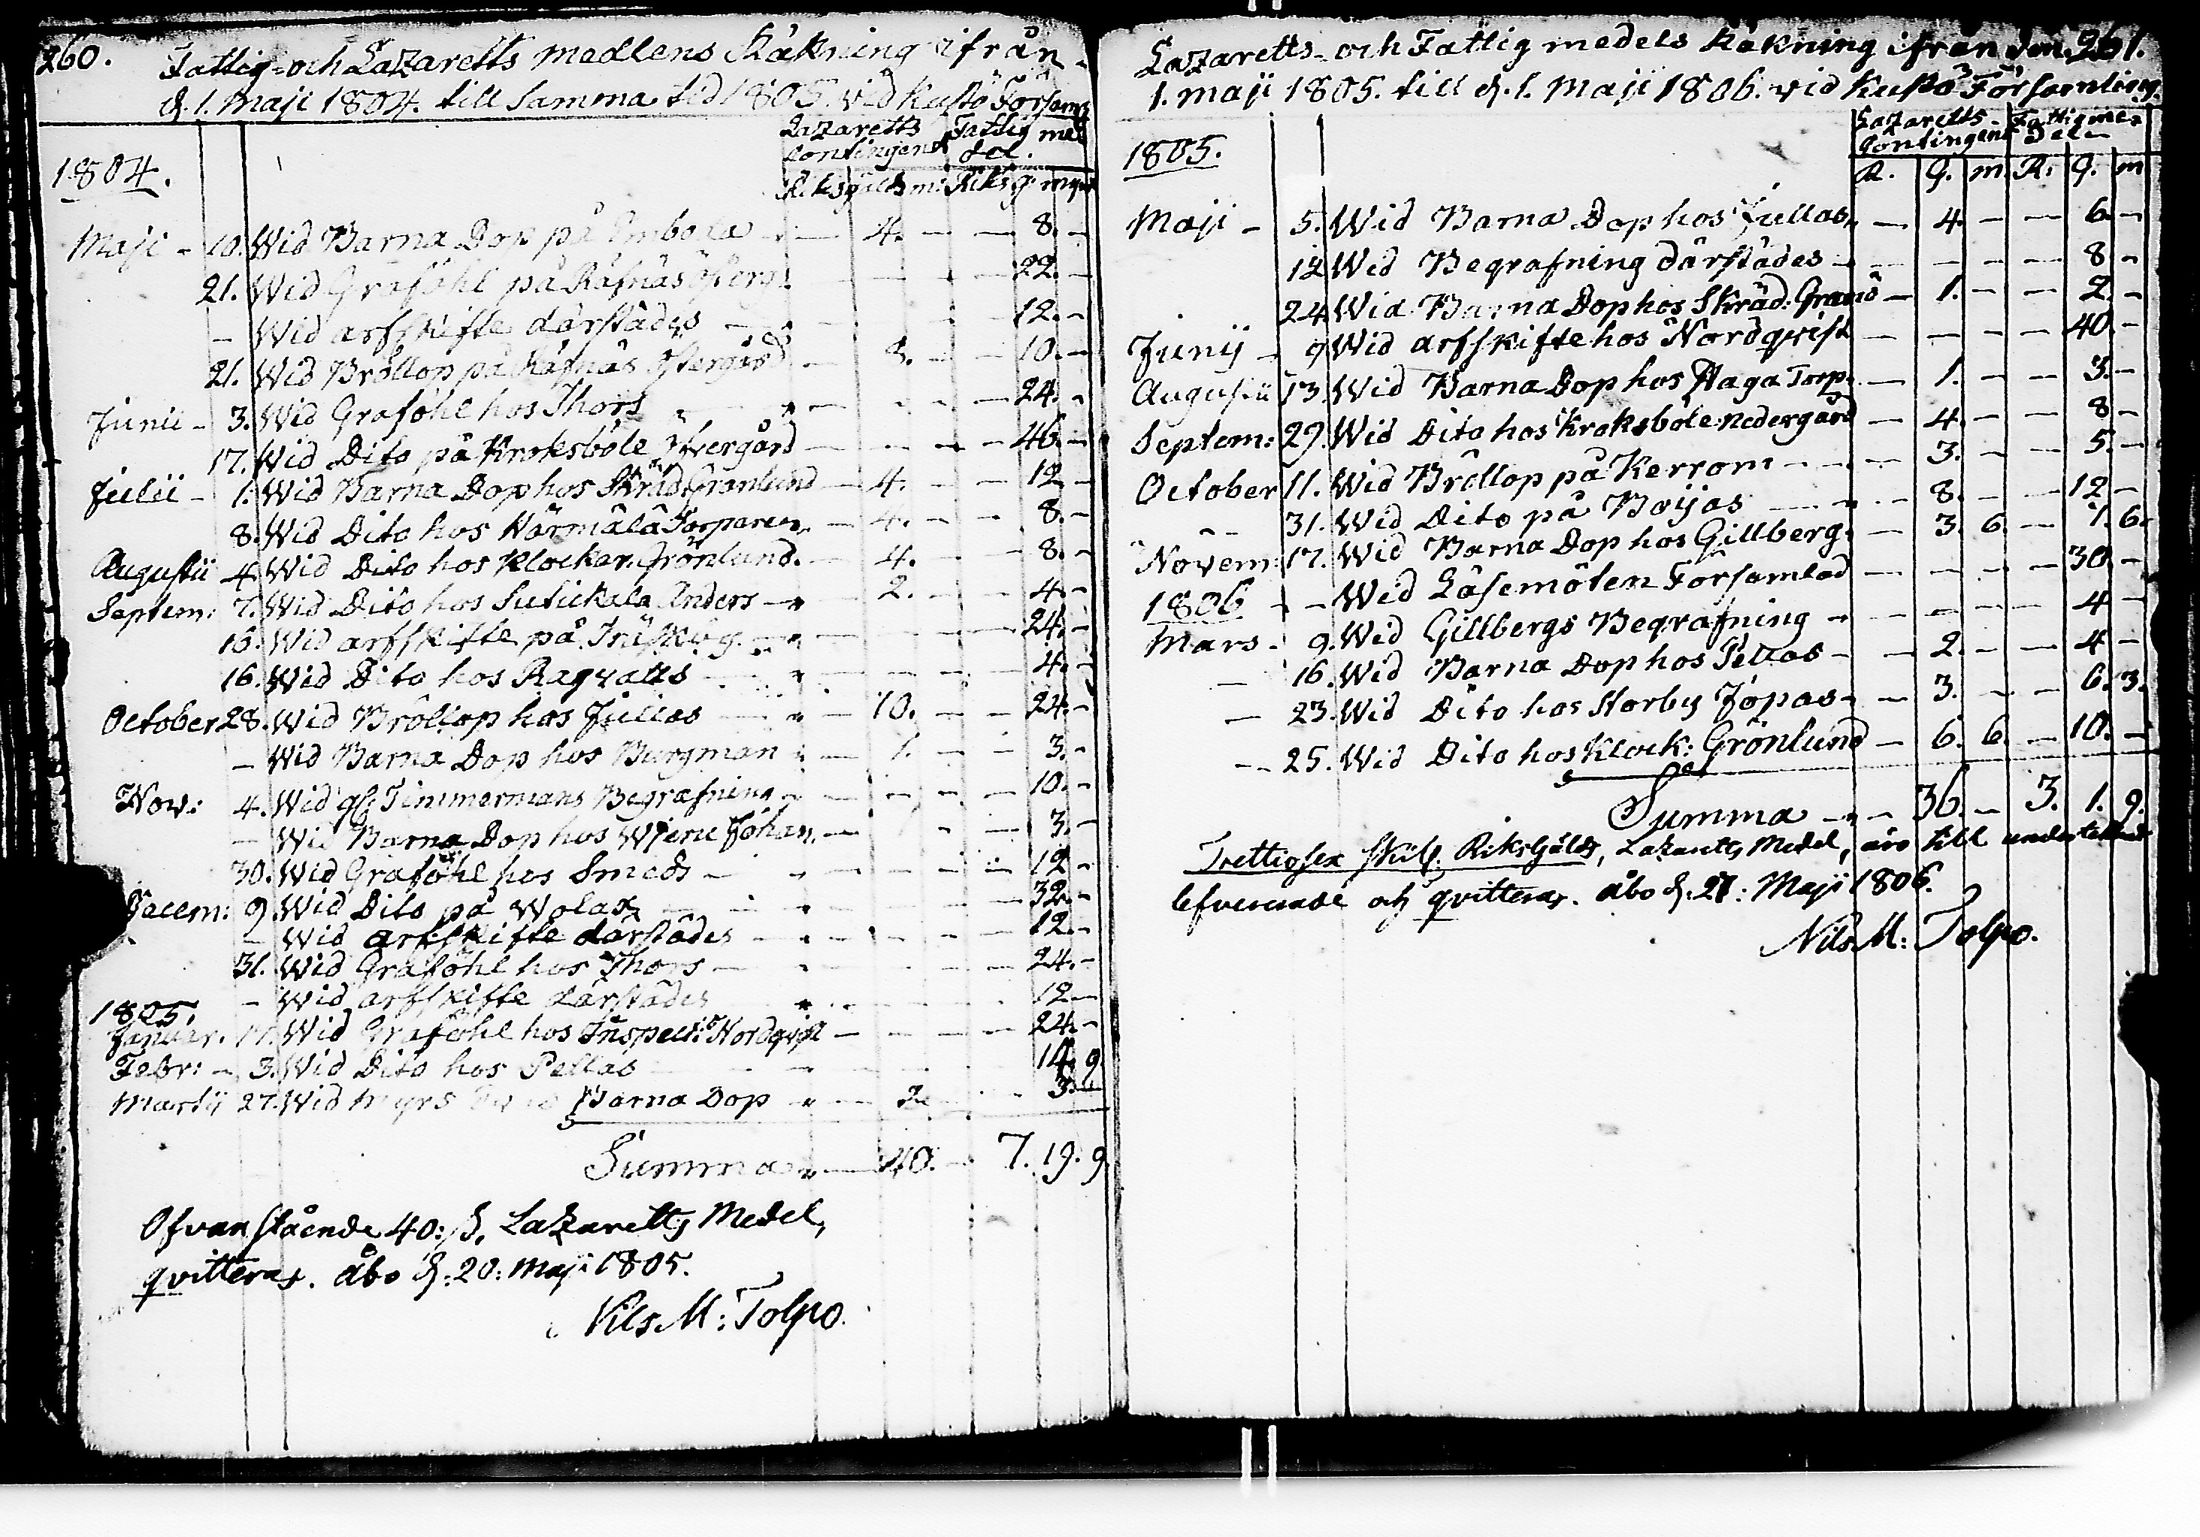 260.
Fattig- och Lazaretts medlens Räkning ifrån
d. 1. Maji 1804. till samma tid 1805. vid Kustö Församl
Lazaretts Contingent Fattig med del.
1804. Riksgäldz m: Riks g: myn
Maji - 10. Wid Barna Dop på Embola - 4. - - 8. -
21. Wid Graföhl på Räfnäs Öfverg - - - 22. -
- Wid arfskifte därstädes - - - 12. -
21. Wid Bröllop på Räfnäs Öfvergård - 8. - - 10. -
Junii - 3. Wid Graföhl hos Thors - - - 24. -
17. Wid Dito på Kroksböle Öfvergård - - - 46. -
Julii - 1. Wid Barna Dop hos Skräd. Grönlund - 4. - - 12 -
8. Wid Dito hos Härmälä Torparen - 4. - - 8. -
Augustii 4. Wid Dito hos Klockar. Grönlund. - 4. - - 8. -
Septem: 7. Wid Dito hos Anders - 2. - - 4. -
16. Wid arfskifte på - - - 24. -
16. Wid Dito hos Ragvalds - - - 4. -
October 28. Wid Bröllop hos Julias - 10. - - 24. -
- Wid Barna Dop hos Burgman - 1. - - 3. -
Nov: 4. Wid Timmermans Begrafning - - - 10. -
- Wid Barna Dop hos Johan - - - 3. -
30. Wid Graföhl hos Smeds - - - 12 -
Decem: 9 Wid Dito på Wolax - - - 32. -
- Wid arfskifte därstädes - - - 12. -
31. Wid Graföhl hos Thors - - - 24. -
- Wid arfskifte därstädes - - - 12 -
1805.
Januar. 17. Wid Graföhl hos Inspect: Nordqvist - - - 24. -
Febr: - 3. Wid Dito hos Pellas - - - 14. 9
Martij 27. Wid Myrs Barna Dop - 2. - - 3. -
Summa - 40. - 7. 19. 9
Ofvanstående 40: s. Lazaretts Medel,
qvitteras. Åbo d: 20: Maji 1805.
Nils M: Tolpo.
261.
Lazaretts- och Fattig medels Räkning ifrån den
1. Maji 1805. till d. 1. Maji 1806. vid Kustö Församling.
Lazaretts- Contingent Fattig me- del
1805. R. G. m. R. G. m
Maji - 5. Wid Barna Dop hos Jullas - 4. - - 6 -
12 Wid Begrafning därstädes - - - 8 -
24 Wid Barna Dop hos Skräd. Granö - 1. - - 2. -
Junij - 9 Wid arfskifte hos Nordqvist - - - 40 -
Augustii 13. Wid Barna Dop hos Haga Torp. - 1. - - 3. -
Septem: 29. Wid Dito hos Kroksböle nedergård - 4. - - 8 -
October 11. Wid Bröllop på Kerrom - 3. - - 5. -
31. Wid Dito på Böijas - 8. - - 12 -
Novem: 17. Wid Barna Dop hos Gillberg - 3. 6. - 1. 6.
1806 - - Wid Läsemöten Församlad - - - 30. -
Mars - 9. Wid Gillbergs Begrafning - - - 4 -
- 16. Wid Barna Dop hos Pellas - 2. - - 4 -
- 23. Wid Dito hos Storby Jopas - 3. - - 6. 3.
- 25. Wid Dito hos Klock: Grönlund - 6. 6. - 10. -
Summa - 36. - 3. 1. 9.
Trettiosex skil. Riksgäldz, Lazaretts Medel, äro till undertecknad
lefvererade och qvitteras. Åbo d: 27: Maji 1806.
Nils M: Tolpo.